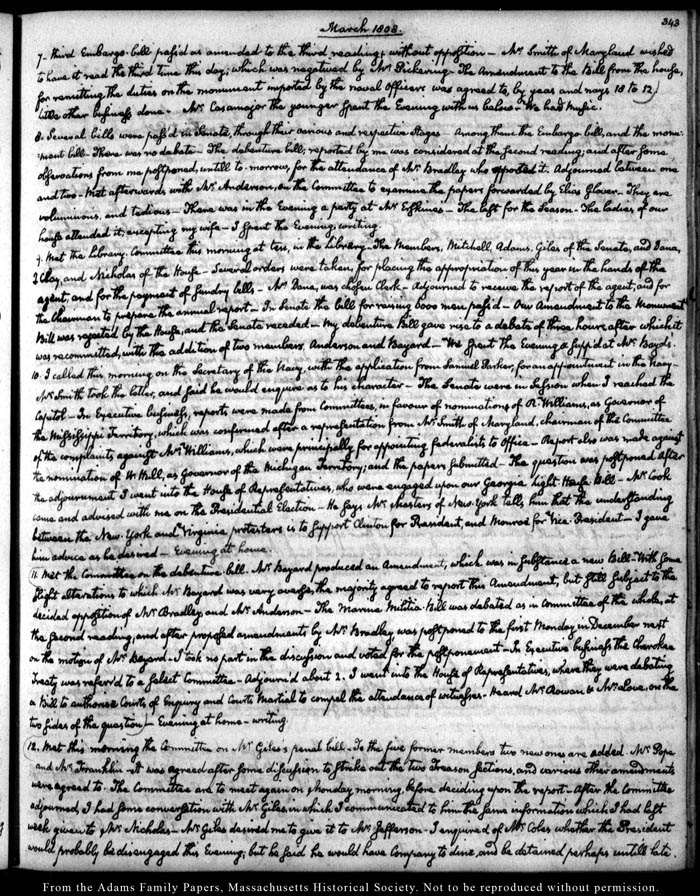 343
March 1808.
7. third Embargo-bill pass'd as amended to the third reading; without opposition — Mr. Smith of Maryland wished
to have it read the third time this day; which was negatived by Mr. Pickering. The Amendment to the Bill from the house,
for remitting the duties on the monument imported by the naval Officers was agreed to, by yeas and nays 18 to 12.
little other business done. Mr. Casamajor the younger spent the Evening with us below. We had Music.
8. Several bills were pass'd in Senate, through their various and respective Stages — Among them the Embargo bill, and the monu-
ment bill — There was no debate — The debenture bill, reported by me was considered at the second reading; and after some
observations from me postponed, untill to-morrow, for the attendance of Mr. Bradley who opposed it. Adjourned between one
and two — Met afterwards with Mr. Anderson, on the Committee to examine the papers forwarded by Elias Glover — They are
voluminous, and tedious — There was in the Evening a party at Mr. Erskine's — The last for the Season — The ladies of our
house attended it, excepting my wife — I spent the Evening, writing.
9. Met the Library Committee this morning at ten, in the Library — The Members, Mitchell, Adams, Giles of the Senate, and Dana,
J. Clay, and Nicholas of the House — Several orders were taken, for placing the appropriation of this year in the hands of the
agent, and for the payment of sundry bills — Mr. Dana, was chosen Clerk — Adjourned to receive the report of the agent; and for
the Chairman to prepare the annual report — In Senate the bill for raising 6000 men pass'd — Our Amendment to the Monument
Bill was rejected by the House, and the Senate receded — My debenture Bill gave rise to a debate of three hours after which it
was recommitted, with the addition of two members. Anderson and Bayard — We spent the Evening & supp'd at Mr. Boyd's.
10. I called this morning on the Secretary of the Navy, with the application from Samuel Parker, for an appointment in the Navy —
Mr. Smith took the letter, and said he would enquire as to his character — The Senate were in Session when I reached the
Capitol — In Executive business, reports were made from Committees, in favour of nominations of R. Williams, as Governor of
the Mississippi Territory, which was confirmed after a representation from Mr. Smith of Maryland, chairman of the Committee
of the complaints against Mr. Williams, which were principally for appointing federalists to Office — Report also was made against
the nomination of W. Hull, as Governor of the Michigan Territory; and the papers submitted — The question was postponed after
the adjournment I went into the House of Representatives, who were engaged upon our Georgia light House Bill — Mr. Cook
came and advised with me on the Presidential Election — He says Mr. Masters of New-York tells him that the understanding
between the New-York and Virginia protesters is to support Clinton for President, and Monroe for Vice-President — I gave
him advice as he desired — Evening at home.
11. Met the Committee on the debenture bill. Mr. Bayard produced an Amendment, which was in substance a new Bill — With some
slight alterations to which Mr. Bayard was very averse, the majority agreed to report this Amendment, but still subject to the
decided opposition of Mr. Bradley and Mr. Anderson — The Marine Militia Bill was debated as in Committee of the whole, at
the second reading, and after proposed amendments by Mr. Bradley was postponed to the first Monday in December next
on the motion of Mr. Bayard — I took no part in the discussion and voted for the postponement — In Executive business the Cherokee
Treaty was referr'd to a select Committee — Adjourn'd about 2. I went into the House of Representatives, where they were debating
a Bill to authorise Courts of Enquiry and Courts Martial to compel the attendance of witnesses. Heard Mr. Rowan & Mr. Love, on the
two sides of the question — Evening at home — writing.
12. Met this morning the Committee on Mr. Giles's penal bill. To the five former members two new ones are added. Mr. Pope
and Mr. Franklin — It was agreed after some discussion to strike out the two Treason sections, and various other amendments
were agreed to. The Committee are to meet again on Monday morning, before deciding upon the report — After the Committee
adjourned, I had some conversation with Mr. Giles in which I communicated to him the same information which I had last
week given to Mr. Nicholas — Mr. Giles desired me to give it to Mr. Jefferson — I enquired of Mr. Coles whether the President
would probably be disengaged this Evening; but he said he would have Company to dine, and be detained perhaps untill late.
From the Adams Family Papers, Massachusetts Historical Society. Not to be reproduced without permission.